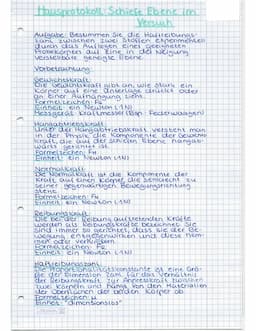 Hausprotokoll: Schiefe Ebene im
Versuch
Aufgabe: Bestimmen Sie die Haftreibungs-
zahl zwischen zwei Stoffen experimentell
durch das Auflegen eines geeigneten
Probekörpers auf eine in der Neigung
verstellbare geneigte Ebene.
Vorbetrachtung:
Gewichtskraft:
Die Gewichtskraft gibt an, wie stark ein
Körper auf eine Unterlage drückt oder
an einer Aufhängung zieht.
Formelzeichen: FG
Einheit: ein Newton (1N)
Messgerät: Kraftmesser (Bsp. Federwaagen)
Hangabtriebskraft:
Unter der Hangabtriebskraft versteht man
in der Physik die Komponente der Gewichts-
kraft, die auf der schiefen Ebene hangab-
wärts gerichtet ist.
Formelzeichen: FH
Einheit: ein Newton (1N)
Normalkraft:
Die Normalkraft ist die Komponente der
Kraft auf einen Körper, die senkrecht zu
seiner gegenwärtigen Bewegungsrichtung
steht.
Formelzeichen: FN
Einheit: ein Newton (1N)
Reibungskraft:
Die bei der Reibung auftretenden Kräfte
werden als Reibungskräfte bezeichnet. Sie
sind immer so gerichtet, dass sie der Be-
wegung entgegenwirken und diese hem-
men oder verhindern.
Formelzeichen: FR
Einheit: ein Newton (1N)
Haftreibungszahl:
Die Proportionalitätskonstante ist eine Grö-
ße der Dimension Zahl für das Verhältnis
der Reibungskraft zur Anpresskraft zwischen
zwei Körpern und hängt von den Materialien
der Oberflächen der beiden Körper ab.
Formelzeichen: μ
Einheit: "dimensionslos"